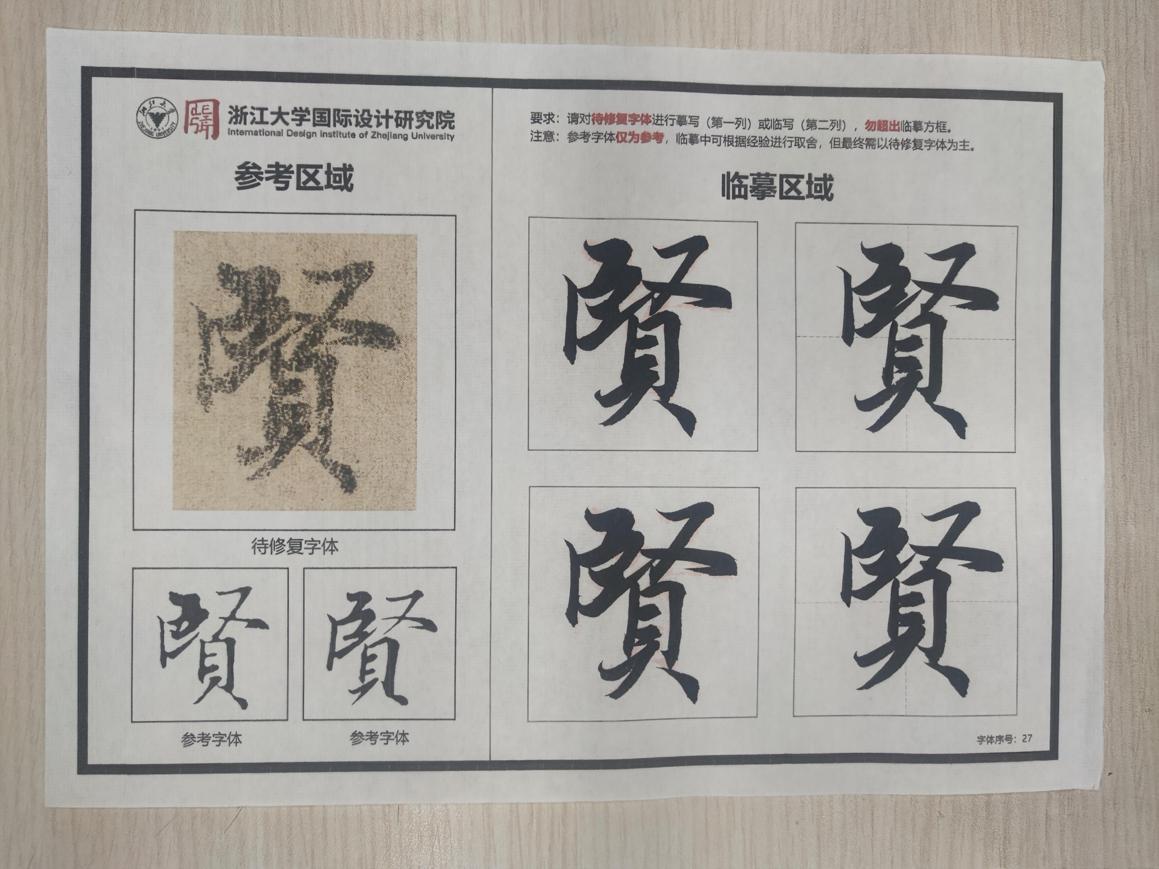 浙江大学国际设计研究院
International Design Institute of Zhejiang University
参考区域
賢
待修复字体
賢
賢
参考字体
参考字体
要求：请对待修复字体进行摹写（第一列）或临写（第二列），勿超出临摹方框。
注意：参考字体仅为参考，临摹中可根据经验进行取舍，但最终需以待修复字体为主。
临摹区域
賢
賢
賢
賢
字体序号：27